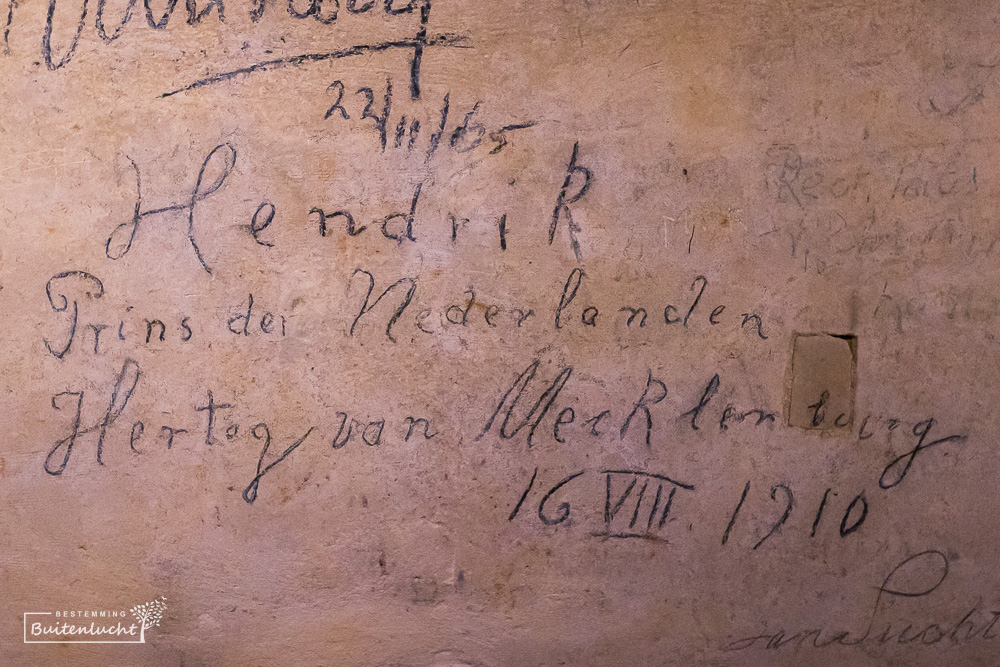 22/11/65
Hendrik
Prins der Nederlanden
Hertog van Mecklenburg
16 VIII 1910
BESTEMMING
Buitenlucht